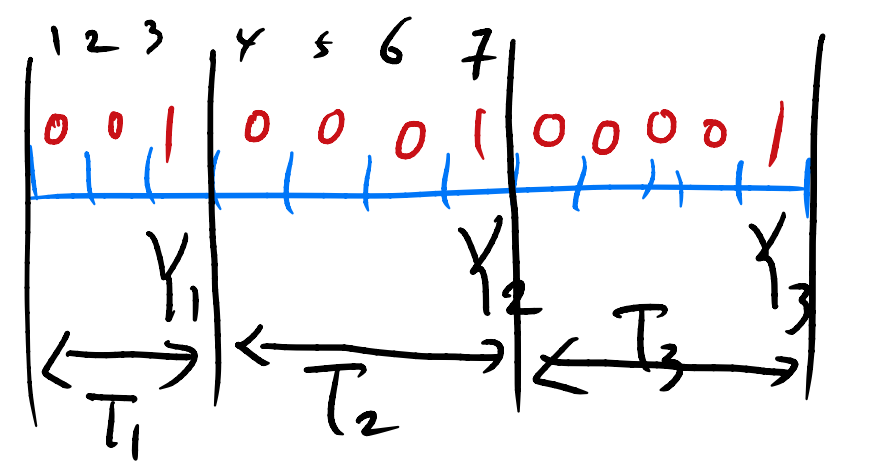 1 2 3 4 5 6 7
0 0 1 0 0 0 1 0 0 0 0 1
Y1 Y2 Y3
T1 T2 T3